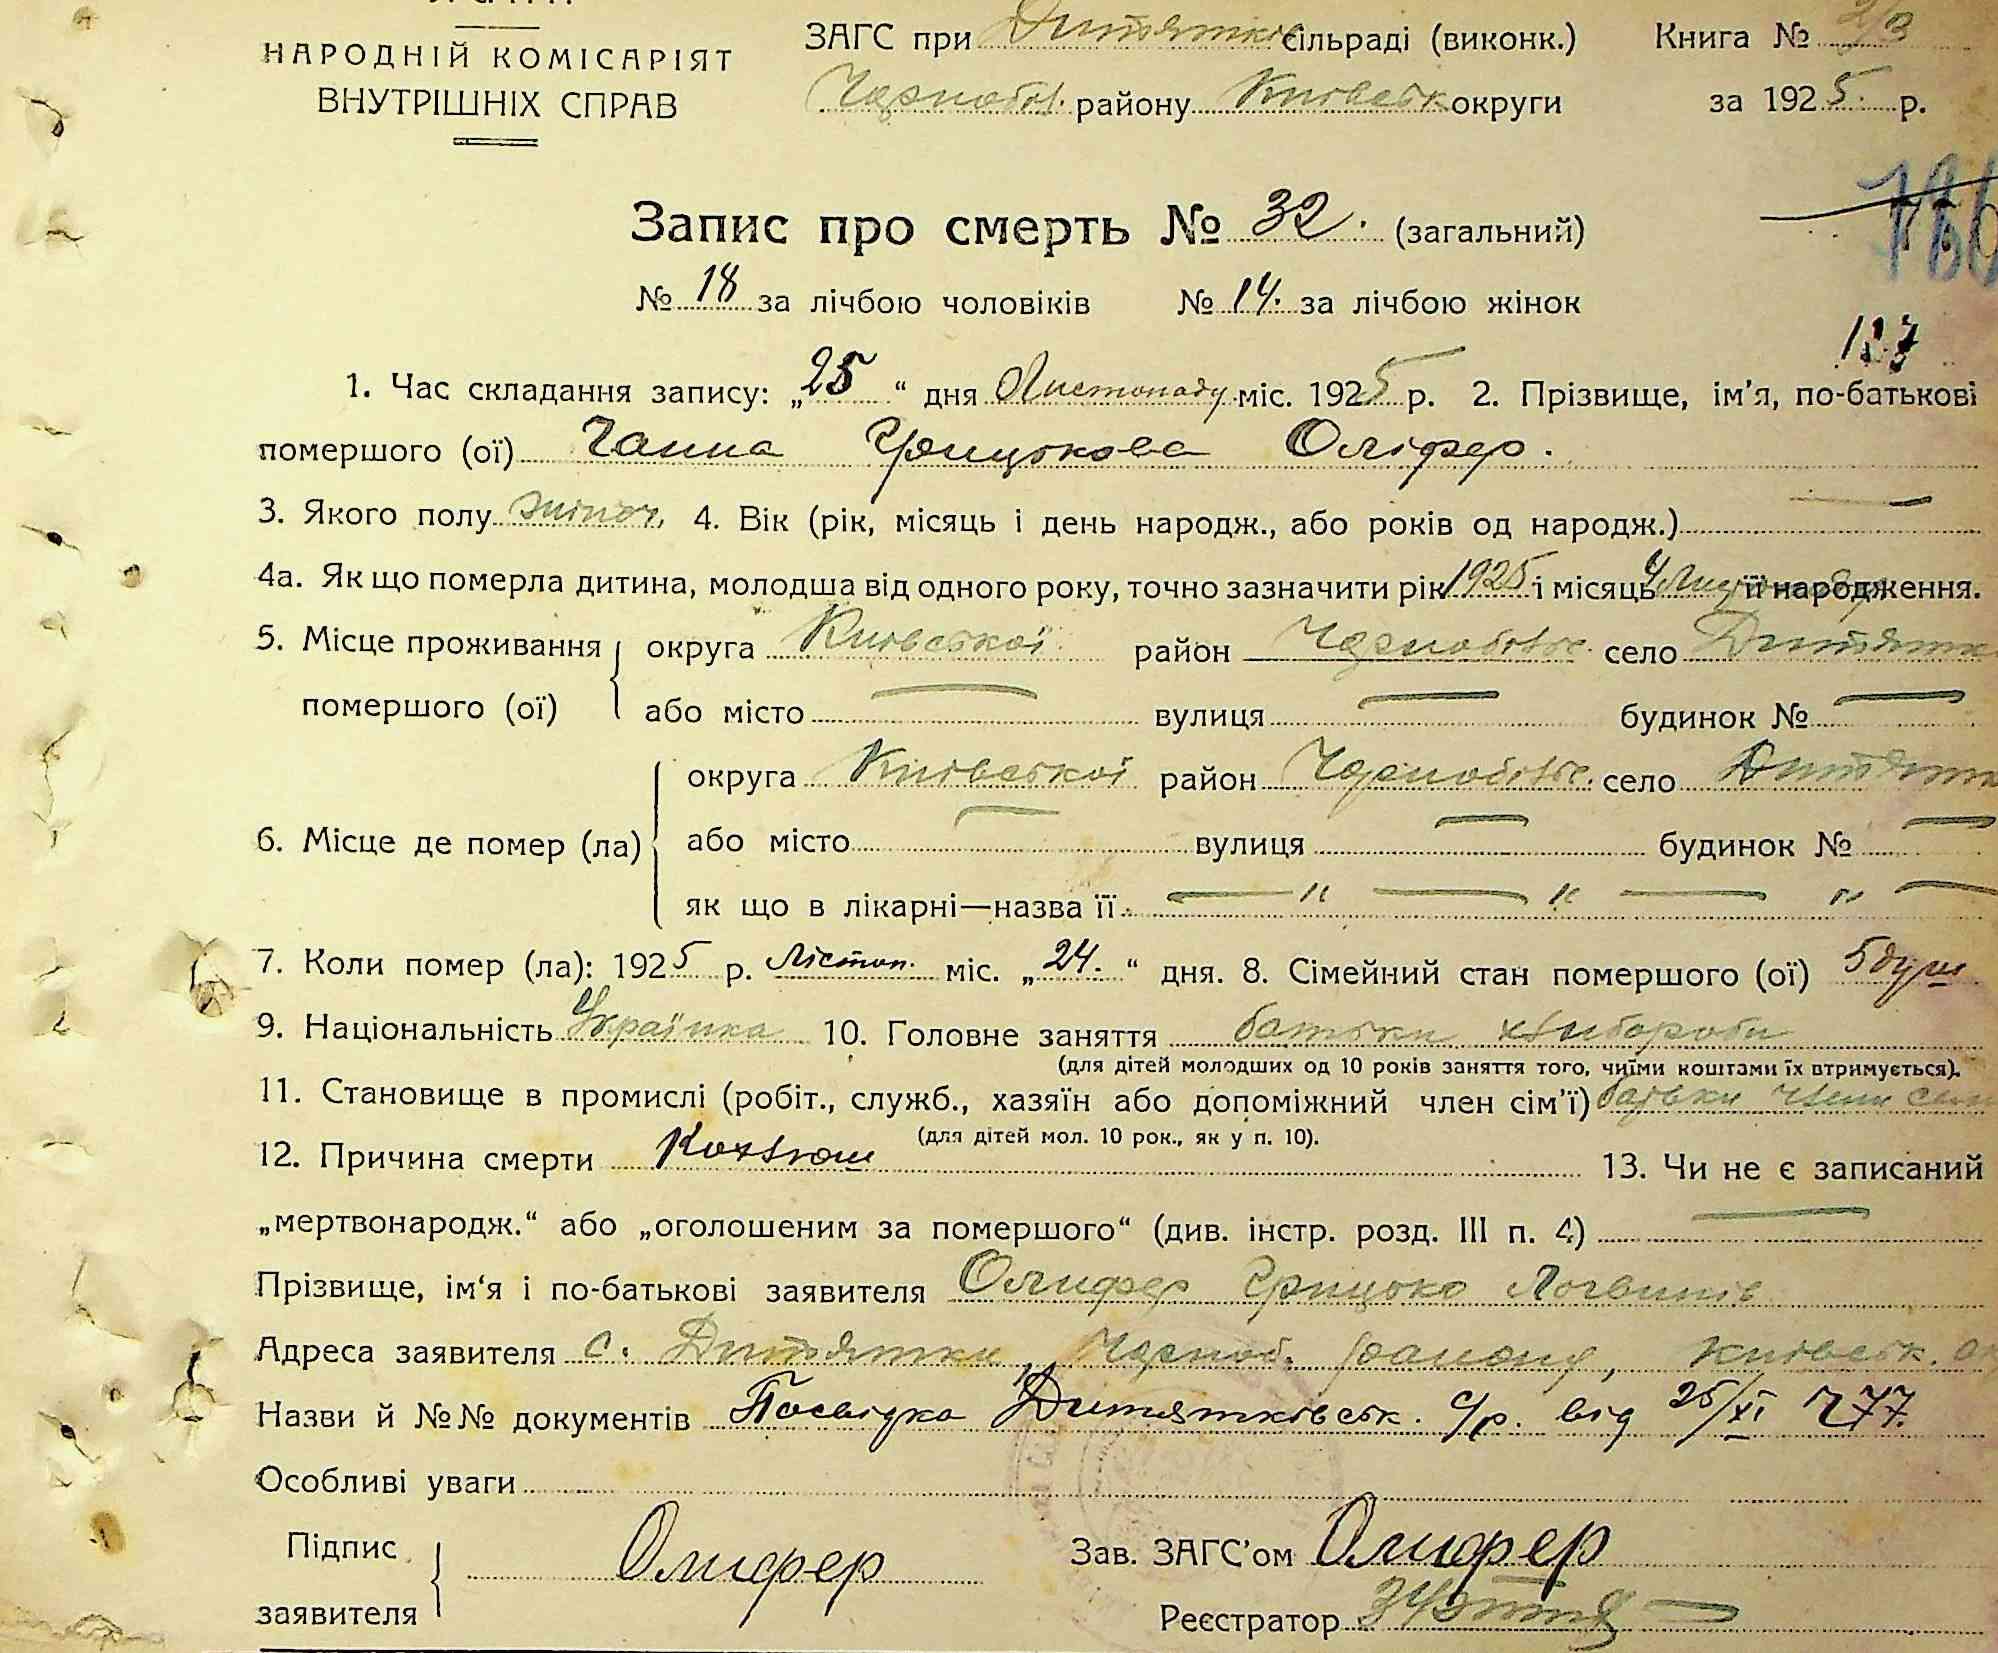 НАРОДНІЙ КОМІСАРІЯТ
ВНУТРІШНІХ СПРАВ
ЗАГС при Дитятків сільраді (виконк.) Книга № 2/3
Чорноб. району Київськ округи за 1925. р.
Запис про смерть № 32. (загальний)
№ 18 за лічбою чоловіків № 14. за лічбою жінок
137
1. Час складання запису: „25 “ дня Листопаду міс. 1925 р. 2. Прізвище, ім’я, по-батькові
помершого (ої) Ганна Грицькова Оліфер.
3. Якого полу жіноч. 4. Вік (рік, місяць і день народж., або років од народж.) —
4а. Як що померла дитина, молодша від одного року, точно зазначити рік 1925 і місяць 4 її народження.
5. Місце проживання помершого (ої) округа Київської район Чорнобильс. село Дитятк
або місто — вулиця — будинок № —
6. Місце де помер (ла) округа Київської район Чорнобильс. село Дитятк
або місто — вулиця — будинок № —
як що в лікарні—назва її — " — " — " —
7. Коли помер (ла): 1925 р. Лістоп. міс. „24. “ дня. 8. Сімейний стан помершого (ої) 5 душ
9. Національність Українка 10. Головне заняття батьки хлібороби
(для дітей молодших од 10 років заняття того, чиїми коштами їх втримується).
11. Становище в промислі (робіт., служб., хазяїн або допоміжний член сім’ї) батьки члени сем
(для дітей мол. 10 рок., як у п. 10).
12. Причина смерти Кохлюш 13. Чи не є записаний
„мертвонародж.“ або „оголошеним за помершого“ (див. інстр. розд. III п. 4) —
Прізвище, ім‘я і по-батькові заявителя Олифер Грицько Логвинів
Адреса заявителя с. Дитятки, Чорноб. району, Київськ. ок
Назви й №№ документів Посвідка Дитятківськ. с/р. від 25/XI 777.
Особливі уваги
Підпис заявителя Олифер Зав. ЗАГС’ом Олифер
Реєстратор